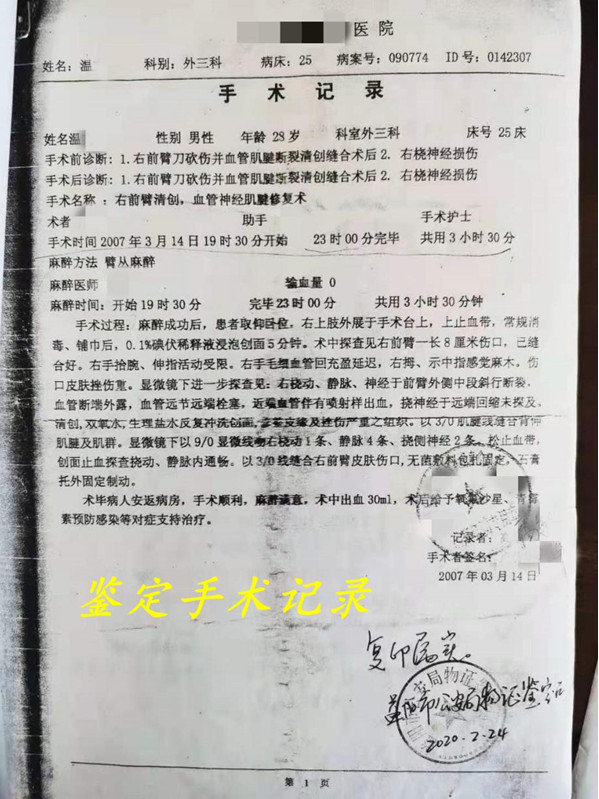 医院
姓名：温 科别：外三科 病床：25 病案号：090774 ID号：0142307
手术记录
姓名温 性别 男性 年龄 28岁 科室外三科 床号 25床
手术前诊断：1.右前臂刀砍伤并血管肌腱断裂清创缝合术后2. 右桡神经损伤
手术后诊断：1.右前臂刀砍伤并血管肌腱断裂清创缝合术后2. 右桡神经损伤
手术名称：右前臂清创，血管神经肌腱修复术
术者 助手 手术护士
手术时间 2007年3月14日19时30分开始 23时00分完毕 共用3小时30分
麻醉方法 臂丛麻醉
麻醉医师 输血量 0
麻醉时间：开始19时30分 完毕23时00分 共用3小时30分钟
手术过程：麻醉成功后，患者取仰卧位，右上肢外展于手术台上，上止血带，常规消
毒、铺巾后，0.1%碘伏稀释液浸泡创面5分钟。术中探查见右前臂一长8厘米伤口，已缝
合好。右手拾腕、伸指活动受限。右手毛细血管回充盈延迟，右拇、示中指感觉麻木。伤
口皮肤挫伤重。显微镜下进一步探查见：右桡动、静脉、神经于前臂外侧中段斜行断裂，
血管断端外露，血管远节远端栓塞，近端血管伴有喷射样出血，挠神经于远端回缩未探及。
清创，双氧水，生理盐水反复冲洗创面，挫伤严重之组织。以3/0肌腱线缝合背伸
肌腱及肌群。显微镜下以9/0显微线吻右桡动1条、静脉4条、挠侧神经2条。松止血带，
创面止血探查挠动、静脉内通畅。以3/0线缝合右前臂皮肤伤口，无菌敷料包扎固定，石膏
托外固定制动。
术毕病人安返病房，手术顺利，麻醉满意，术中出血30ml，术后给予氧氟沙星、青霉
素预防感染等对症支持治疗。
记录者：
手术者签名：
2007年03月14日
鉴定手术记录
复印属实。
市公安局物证鉴定
2020.2.24
第 1 页